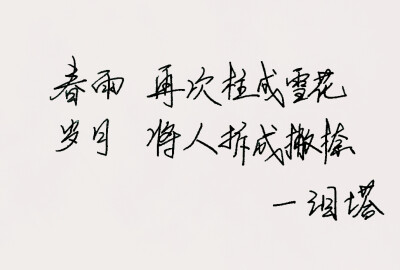 春雨 再次挂成雪花
岁月 将人拆成撇捺
一泪塔